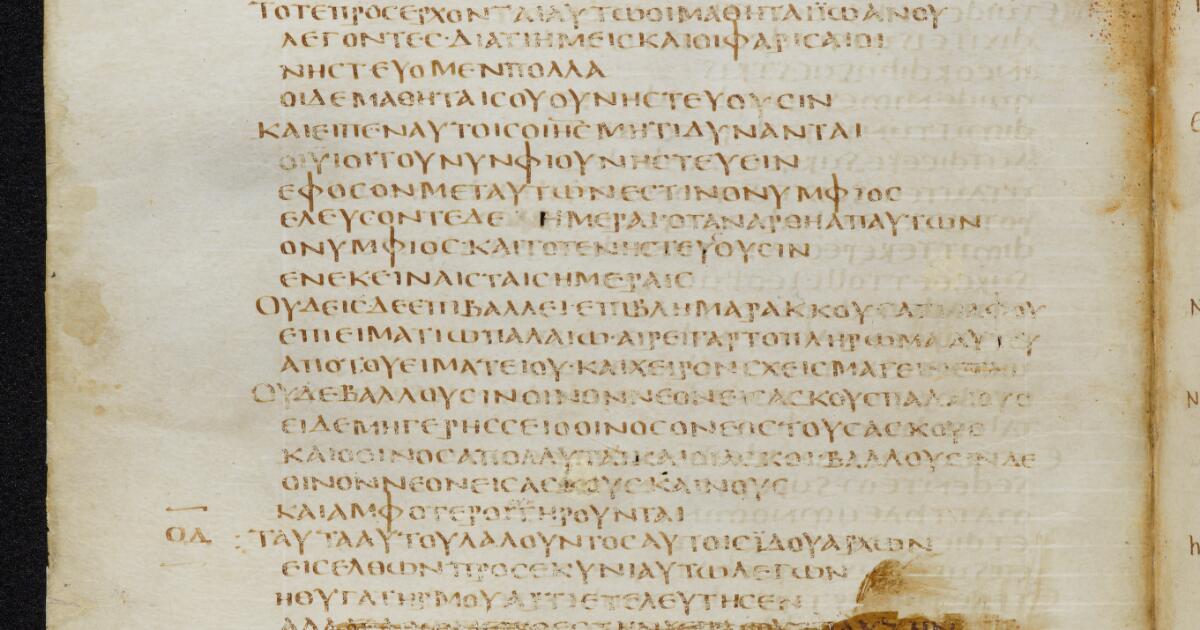 ΤΟΤΕΠΡΟΣΕΡΧΟΝΤΑΙΑΥΤΩΟΙΜΑΘΗΤΑΙΪΩΑΝΟΥ
ΛΕΓΟΝΤΕΣ·ΔΙΑΤΙΗΜΕΙΣΚΑΙΟΙΦΑΡΙΣΑΙΟΙ
ΝΗΣΤΕΥΟΜΕΝΠΟΛΛΑ
ΟΙΔΕΜΑΘΗΤΑΙΣΟΥΟΥΝΗΣΤΕΥΟΥΣΙΝ
ΚΑΙΕΙΠΕΝΑΥΤΟΙΣΟΙΗΣΜΗΤΙΔΥΝΑΝΤΑΙ
ΟΙΥΙΟΙΤΟΥΝΥΝΦΙΟΥΝΗΣΤΕΥΕΙΝ
ΕΦΟΣΟΝΜΕΤΑΥΤΩΝΕΣΤΙΝΟΝΥΜΦΙΟΣ
ΕΛΕΥΣΟΝΤΕΔΕ ΗΜΕΡΑΙΟΤΑΝΑΡΘΗΑΠΑΥΤΩΝ
ΟΝΥΜΦΙΟΣ·ΚΑΙΤΟΤΕΝΗΣΤΕΥΟΥΣΙΝ
ΕΝΕΚΕΙΝΑΙΣΤΑΙΣΗΜΕΡΑΙΣ
ΟΥΔΕΙΣΔΕΕΠΙΒΑΛΛΕΙ·ΕΠΙΒΛΗΜΑΡΑΚΚΟΥΣΑΓΝΑΦΟΥ
ΕΠΙΕΙΜΑΤΙΩΠΑΛΑΙΩ·ΑΙΡΕΙΓΑΡΤΟΠΛΗΡΩΜΑΑΥΤΟΥ
ΑΠΟΤΟΥΕΙΜΑΤΕΙΟΥ·ΚΑΙΧΕΙΡΟΝΣΧΕΙΣΜΑΓΕΙΝΕΤΑΙ
ΟΥΔΕΒΑΛΛΟΥΣΙΝΟΙΝΟΝΝΕΟΝΕΙΣΑΣΚΟΥΣΠΑΛΑΙΟΥΣ
ΕΙΔΕΜΗΓΕΡΗΣΣΕΙΟΟΙΝΟΣΟΝΕΟΣΤΟΥΣΑΣΚΟΥΣ
ΚΑΙΟΟΙΝΟΣΑΠΟΛΛΥΤΑΙΚΑΙΟΙΑΣΚΟΙ·ΒΑΛΛΟΥΣΙΝΔΕ
ΟΙΝΟΝΝΕΟΝΕΙΣΑΣΚΟΥΣΚΑΙΝΟΥΣ
ΚΑΙΑΜΦΟΤΕΡΟΙΤΗΡΟΥΝΤΑΙ
ΟΔ ΤΑΥΤΑΑΥΤΟΥΛΑΛΟΥΝΤΟΣΑΥΤΟΙΣΪΔΟΥΑΡΧΩΝ
ΕΙΣΕΛΘΩΝΠΡΟΣΕΚΥΝΙΑΥΤΩΛΕΓΩΝ
ΗΘΥΓΑΤΗΡΜΟΥΑΡΤΙΕΤΕΛΕΥΤΗΣΕΝ